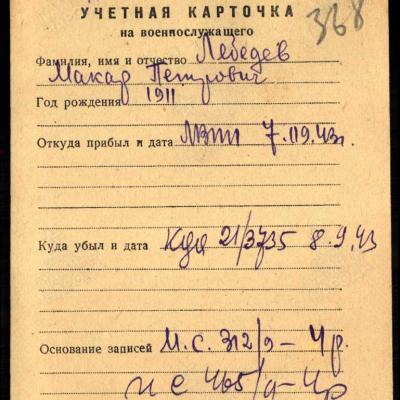 УЧЕТНАЯ КАРТОЧКА
368
на военнослужащего
Фамилия, имя и отчество Лебедев
Макар Петрович
Год рождения 1911
Откуда прибыл и дата 7.09.43г.
Куда убыл и дата 21/3735 8.9.43
Основание записей И.С. 312/9 – 4р.
и с 465/9 – 4р